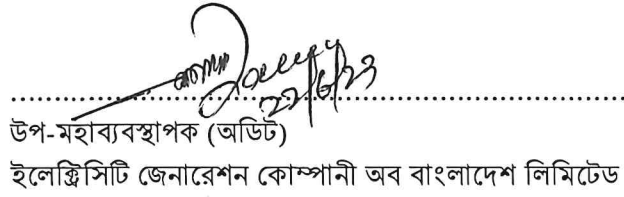 ২২/৬/২৩
উপ-মহাব্যবস্থাপক (অডিট)
ইলেক্ট্রিসিটি জেনারেশন কোম্পানী অব বাংলাদেশ লিমিটেড